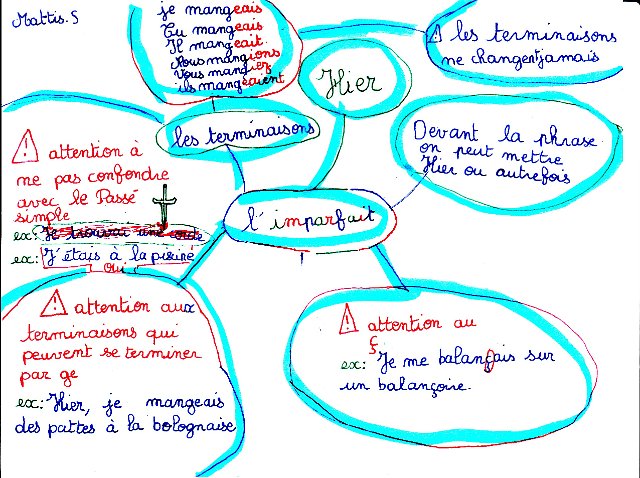 Mattis.S
je mangeais
Tu mangeais
Il mangeait
Nous mangions
Vous mangiez
ils mangeaient
les terminaisons
Hier
⚠ les terminaisons
ne changent jamais
Devant la phrase
on peut mettre
Hier ou autrefois
l'imparfait
⚠ attention à
ne pas confondre
avec le Passé
simple
ex: Je trouvai une
ex: J'étais à la piscine
oui
⚠ attention aux
terminaisons qui
peuvent se terminer
par ge
ex: Hier, je mangeais
des pattes à la bolognaise
⚠ attention au
ç
ex: Je me balançais sur
un balançoire.